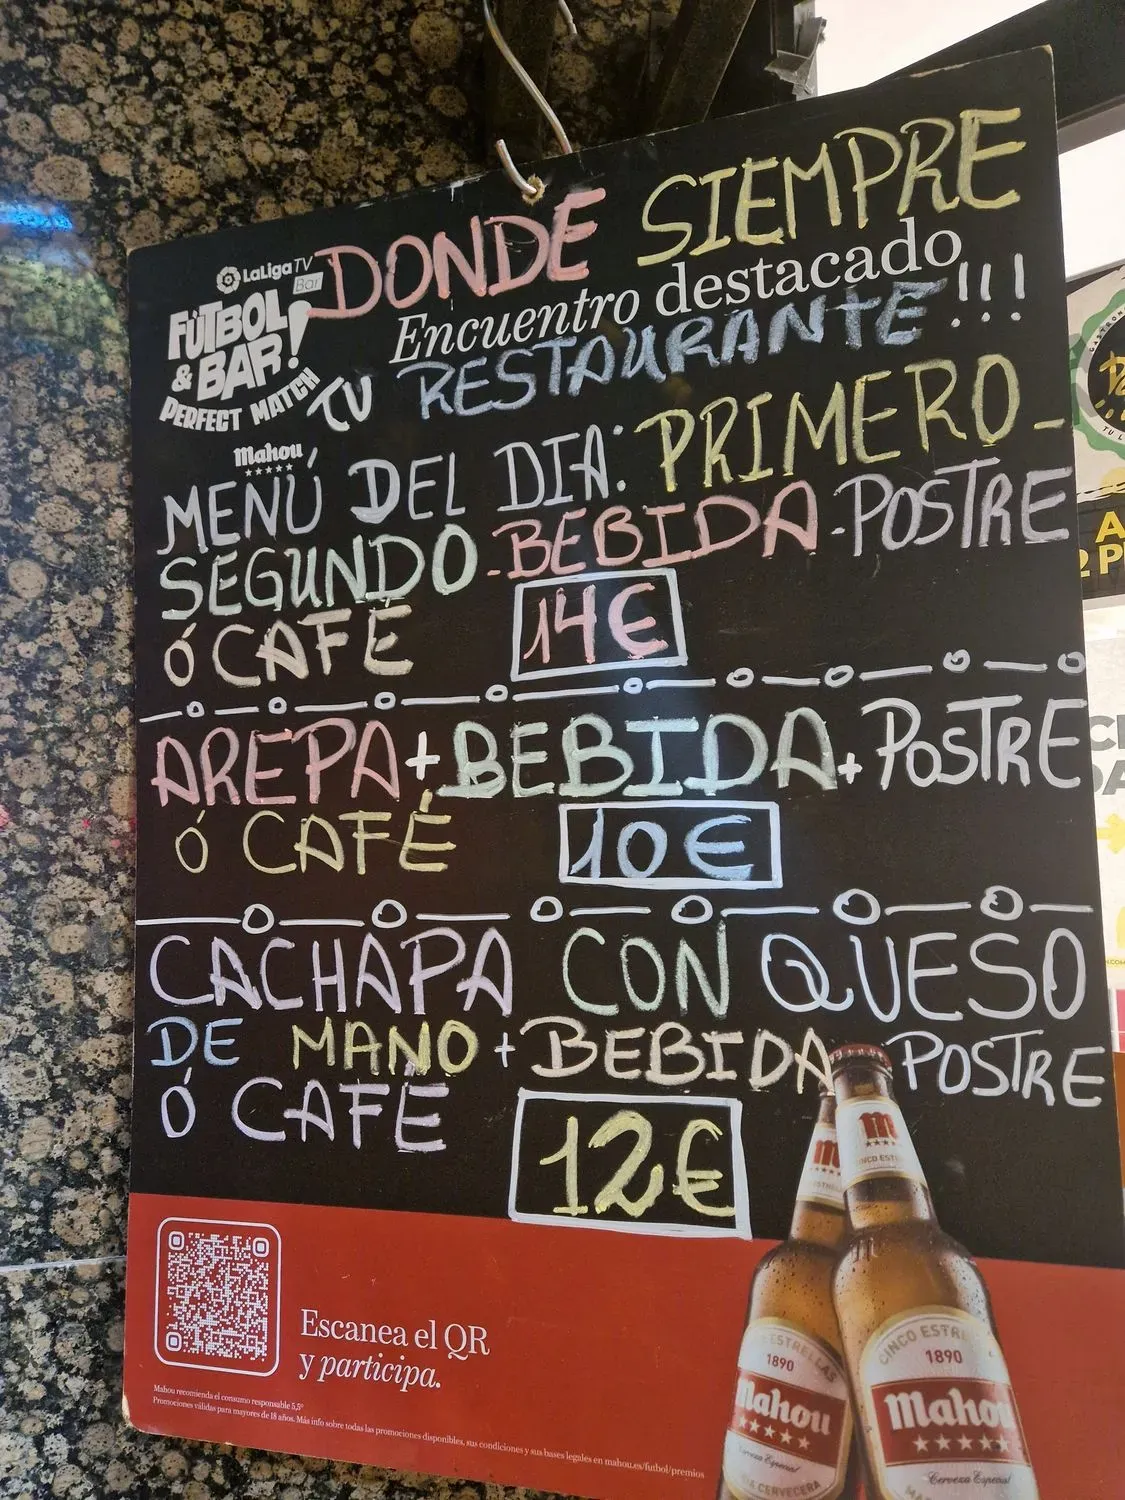 DONDE SIEMPRE
LaLiga TV
Bar
FÚTBOL
& BAR!
PERFECT MATCH
Mahou
Encuentro destacado
TU RESTAURANTE!!!
MENÚ DEL DIA: PRIMERO -
SEGUNDO - BEBIDA - POSTRE
Ó CAFÉ 14€
AREPA + BEBIDA + POSTRE
Ó CAFÉ 10€
CACHAPA CON QUESO
DE MANO + BEBIDA POSTRE
Ó CAFÉ 12€
Escanea el QR
y participa.
Mahou recomienda el consumo responsable 5,5º
Promociones válidas para mayores de 18 años. Más info sobre todas las promociones disponibles, sus condiciones y sus bases legales en mahou.es/futbol/premios
CINCO ESTRELLAS
1890
Mahou
Cerveza Especial
CERVECERA
CINCO ESTRE
1890
Mahou
Cerveza Especial